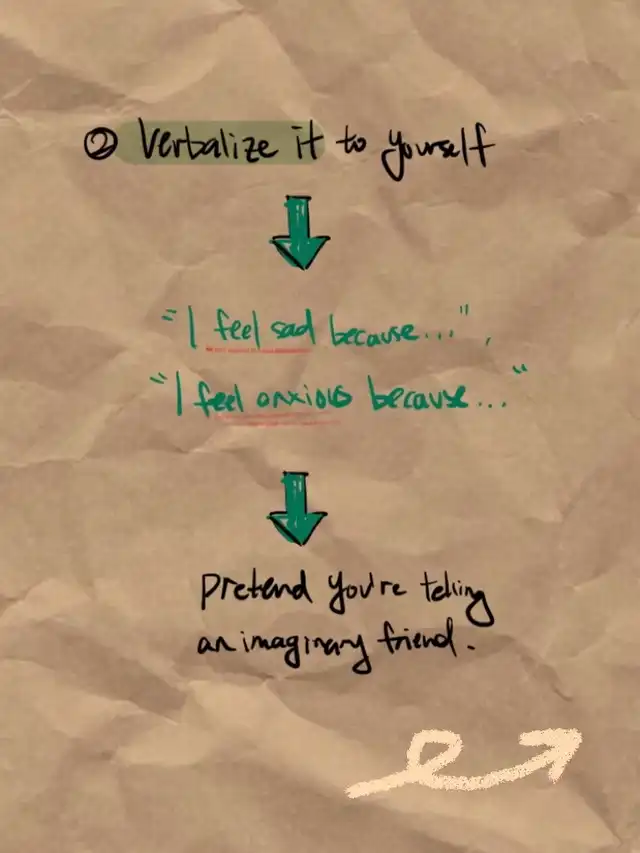 ② Verbalize it to yourself
"I feel sad because...",
"I feel anxious because..."
Pretend you're telling
an imaginary friend.